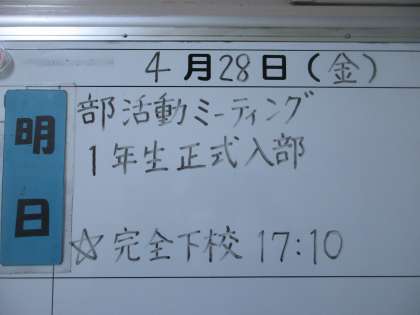 4月28日(金)
明日
部活動ミーティング
1年生正式入部
☆完全下校 17:10